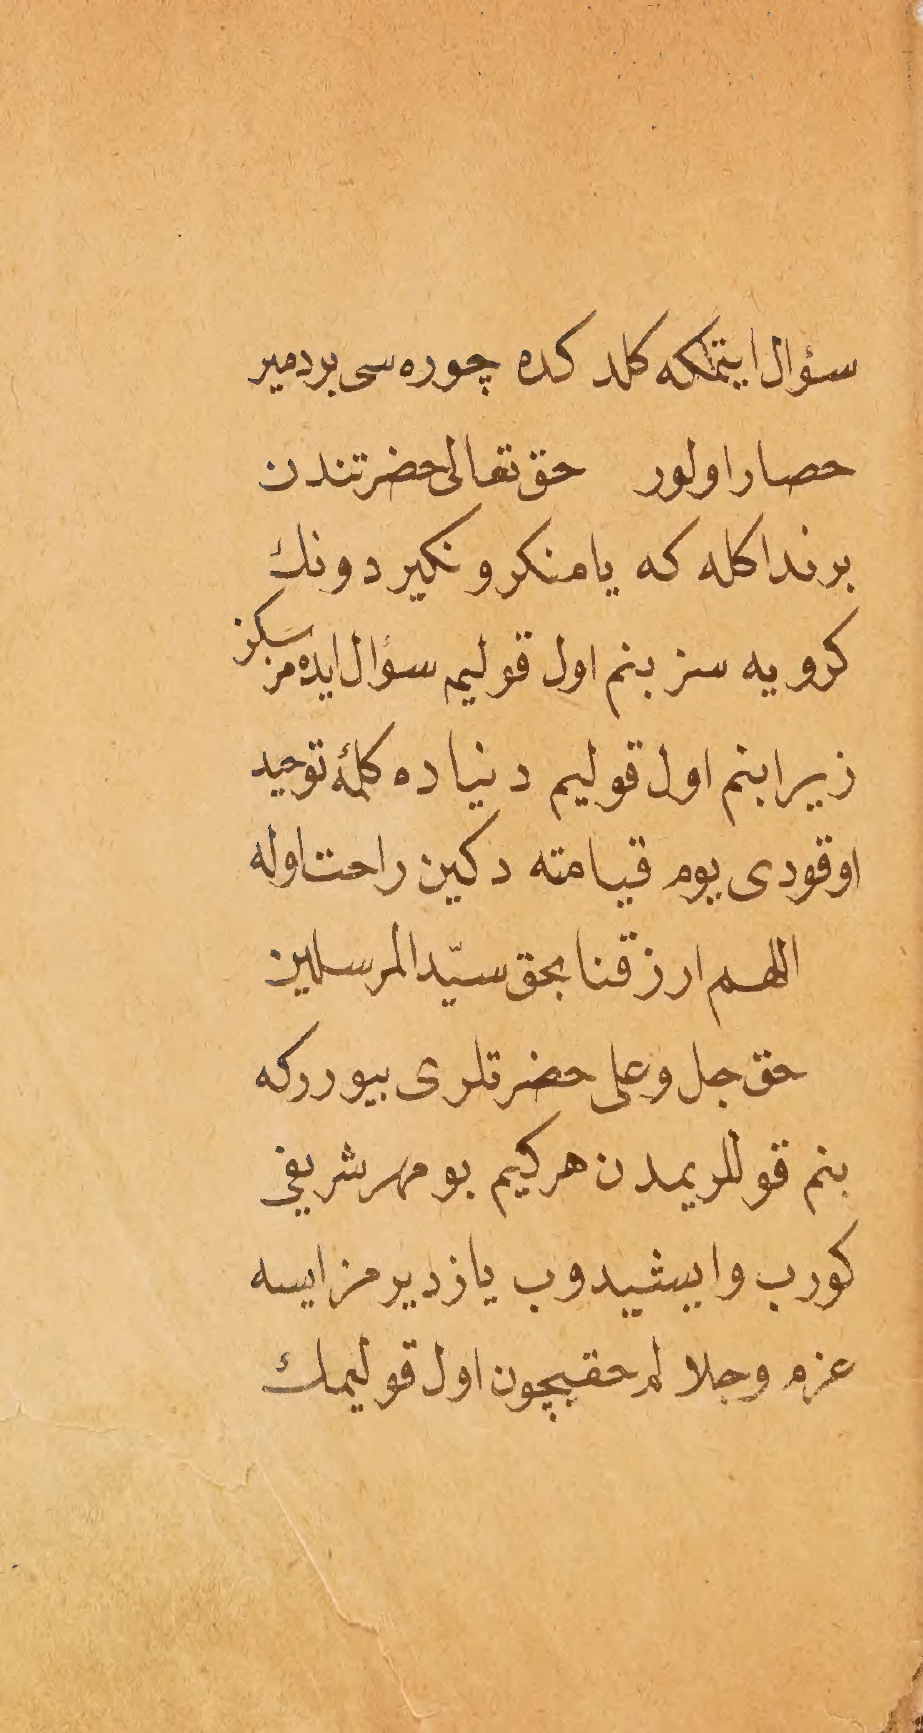 سؤال ایتمکه کلدکده چوره سی بر دمیر
حصار اولور حق تعالی حضرتندن
بر ندا کله که یا منکر و نکیر دونك
کرویه سز بنم اول قولیم سؤال ایده مزسکز
زیرا بنم اول قولیم دنیاده کلمۀ توحید
اوقودی یوم قیامته دکین راحت اوله
اللهم ارزقنا بحق سیّد المرسلین
حق جل وعلی حضرتلری بیوررکه
بنم قوللریمدن هرکیم بو مهر شریفی
کورب و ایشیدوب یازدیرمز ایسه
عزم وجلالم حقیچون اول قولیمك